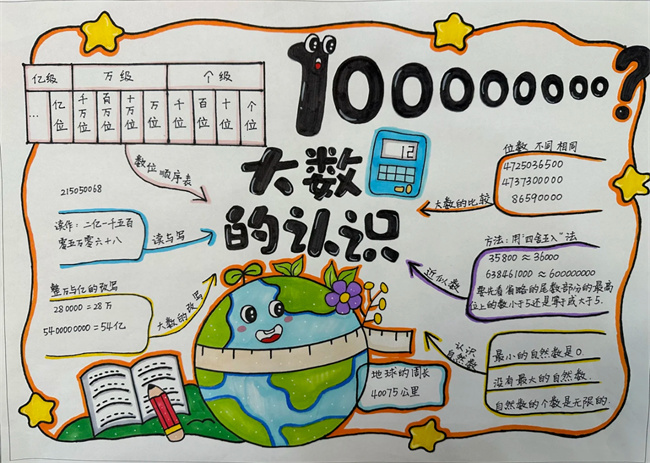 1000000000?
亿级 万级 个级
… 亿位 千万位 百万位 十万位 万位 千位 百位 十位 个位
数位顺序表
大数
的认识
12
位数 不同 相同
4725036500
4737300000
86590000
大数的比较
215050068
读作:二亿一千五百
零五万零六十八
读与写
方法:用“四舍五入”法
35800≈36000
638461000≈600000000
要先看省略的尾数部分的最高
位上的数小于5还是等于或大于5.
近似数
整万与亿的改写
280000=28万
5400000000=54亿
大数的改写
认识
自然数
最小的自然数是0.
没有最大的自然数.
自然数的个数是无限的.
地球的周长
40075公里